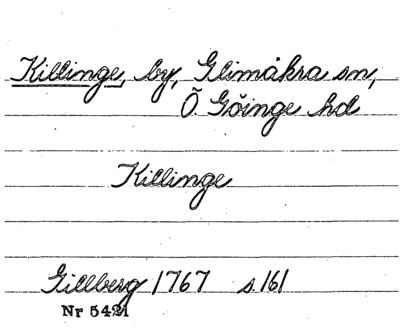 Killinge, by, Glimåkra sn,
Ö. Göinge hd
Killinge
Gillberg 1767 s. 161
Nr 5421